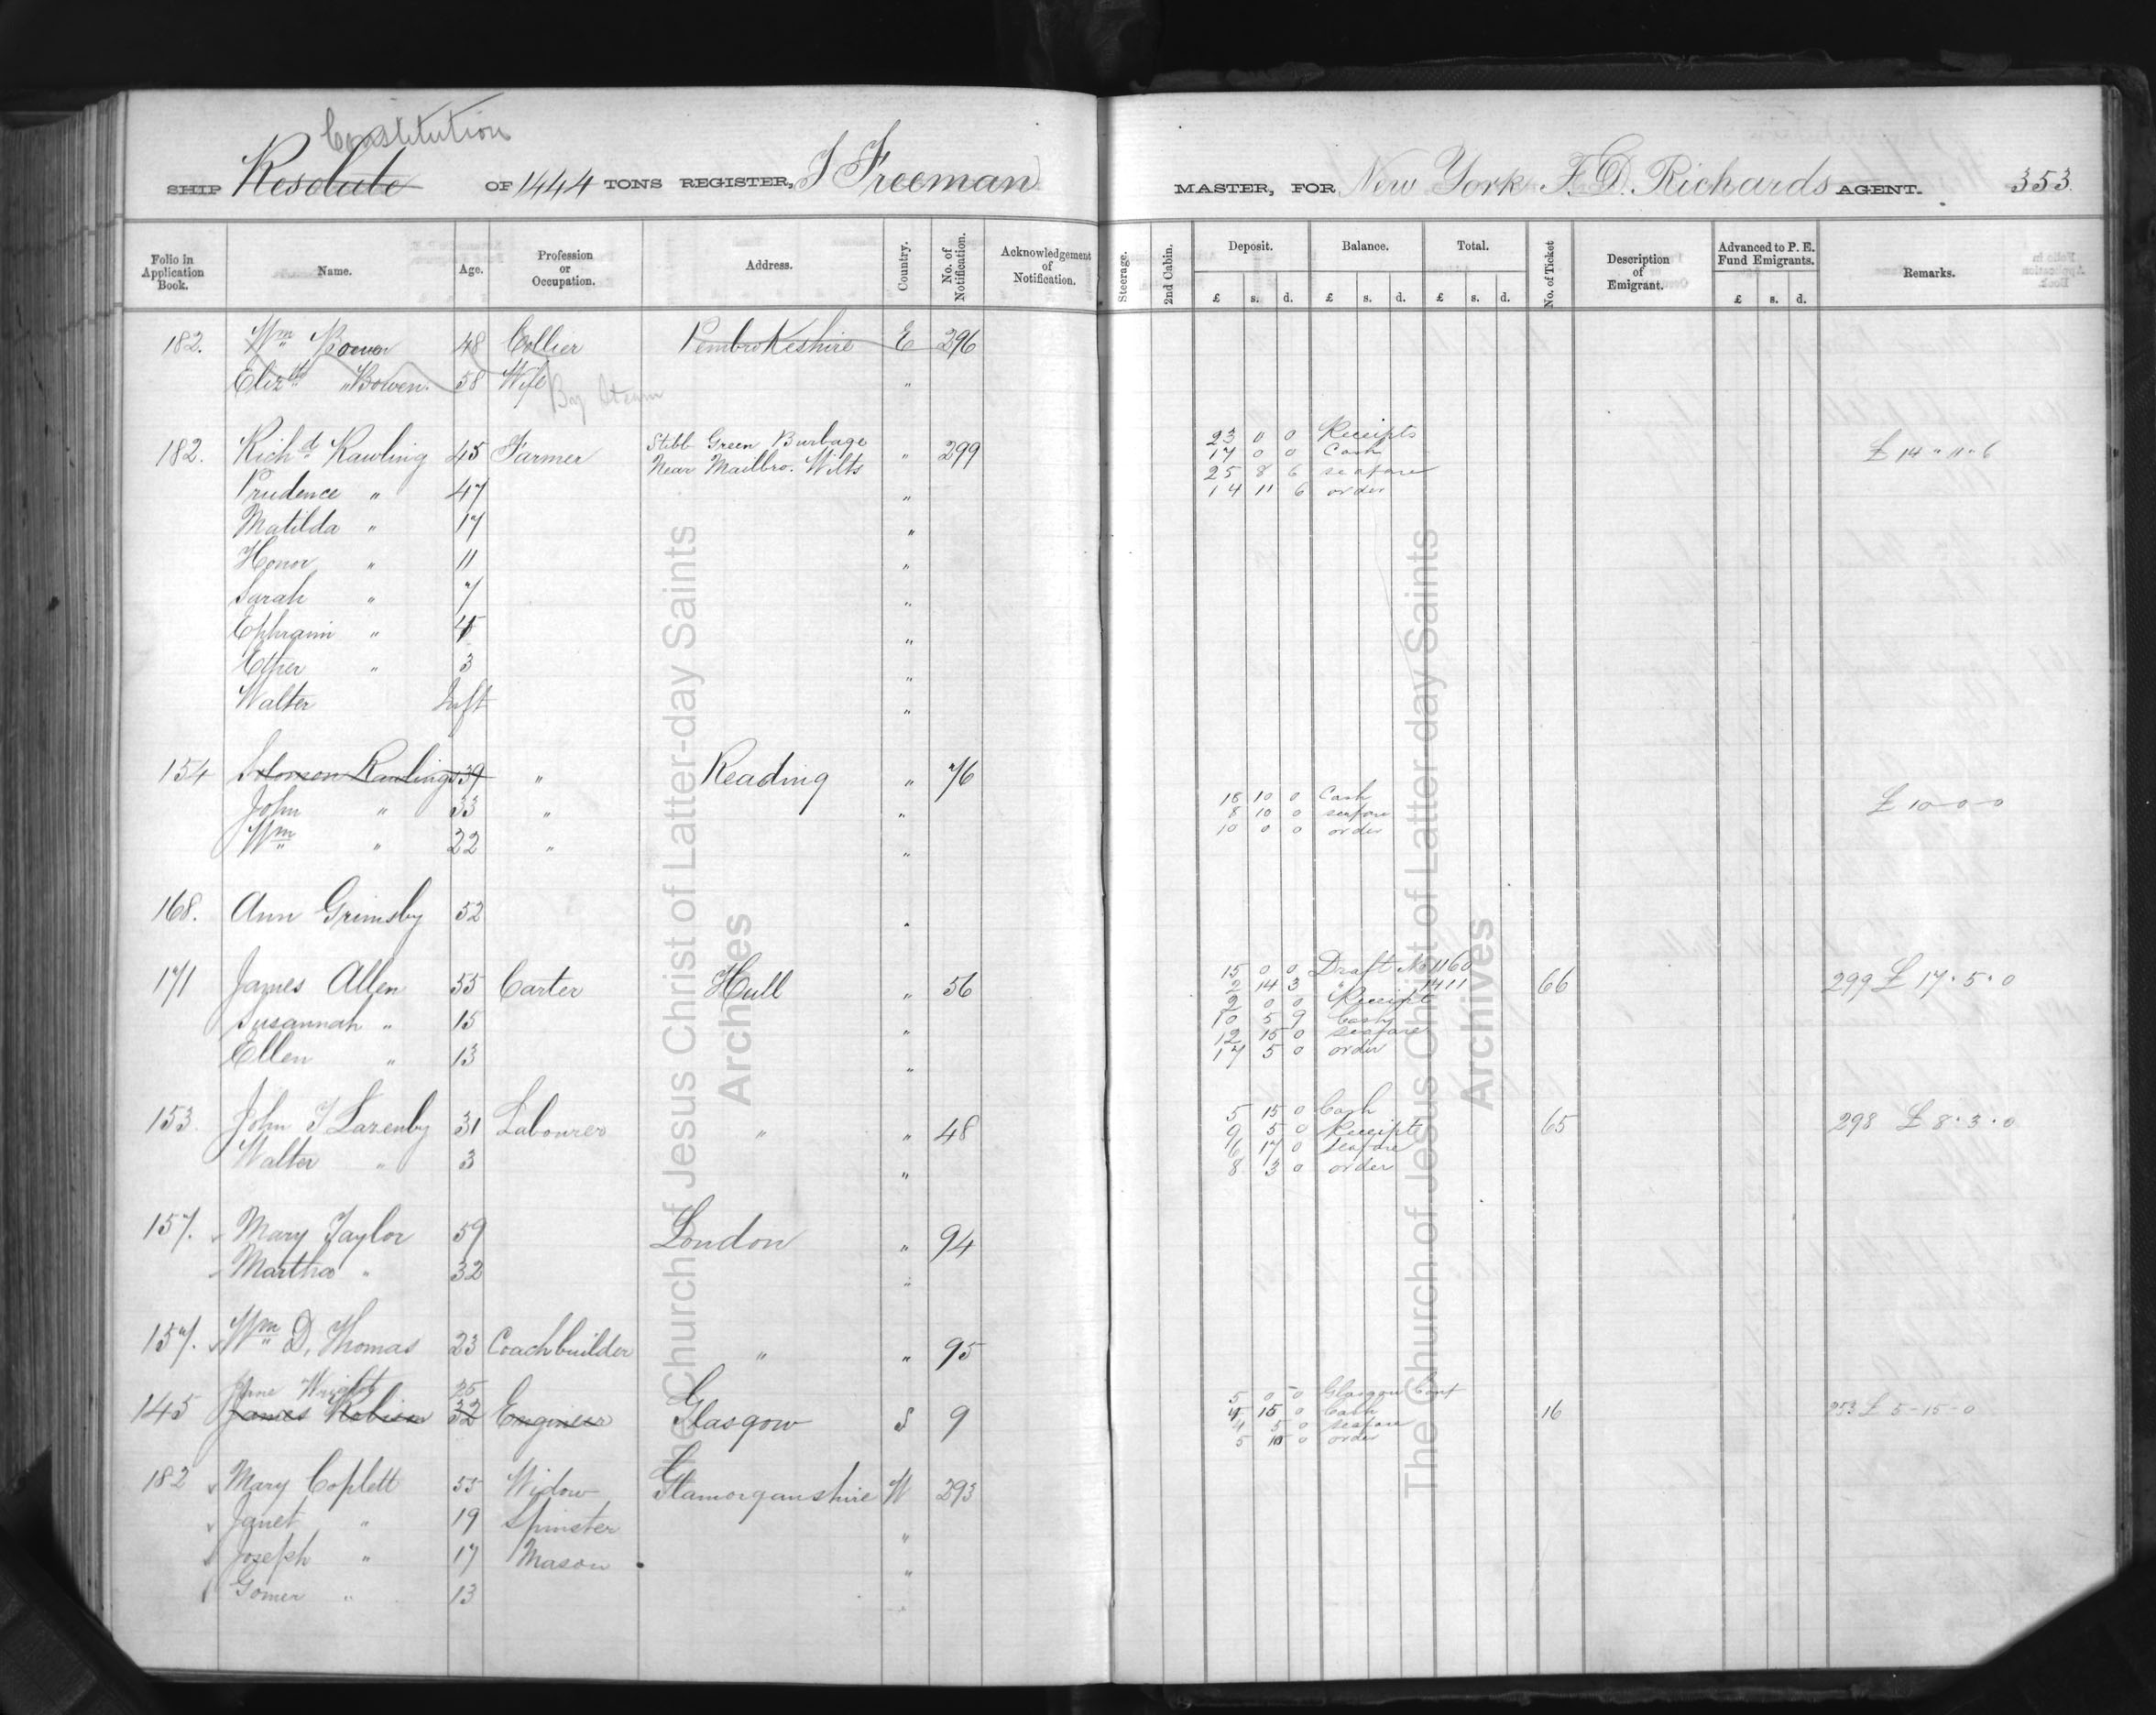 Constitution
SHIP Resolute OF 1444 TONS REGISTER, J Freeman MASTER, FOR New York F. D. Richards AGENT. 353
Folio in Application Book. Name. Age. Profession or Occupation. Address. Country. No. of Notification. Acknowledgement of Notification. Steerage. 2nd Cabin. Deposit. Balance. Total. No. of Ticket Description of Emigrant. Advanced to P. E. Fund Emigrants. Remarks.
£ s. d. £ s. d. £ s. d. £ s. d.
182. Wm Bowen 48 Collier Pembrokeshire E 296
Elizth Bowen. 58 Wife "
By Steam
182. Richd Rawling 45 Farmer Stibb Green Burbage Near Mailbro. Wilts " 299 £ 14 " 11 " 6
23 0 0 Receipts
17 0 0 Cash
25 8 6 seafare
14 11 6 order
Prudence " 47 "
Matilda " 17 "
Honor " 11 "
Sarah " 7 "
Ephraim " 4 "
Ether " 3 "
Walter Inft "
154 Solomon Rawlings 39 " Reading " 76
John " 33 " " £ 10-0-0
Wm " 22 " "
18 10 0 Cash
8 10 0 seafare
10 0 0 order
168. Ann Grimsby 52
171 James Allen 55 Carter Hull " 56 66 299 £ 17 . 5 . 0
Susannah " 15 "
Ellen " 13 "
15 0 0 Draft No 1160
2 14 3 " 1411
2 0 0 Receipt
10 5 9 Cash
12 15 0 seafare
17 5 0 order
153. John T Lazenby 31 Labourer " " 48 65 298 £ 8 . 3 . 0
Walter " 3 "
5 15 0 Cash
9 5 0 Receipts
6 17 0 seafare
8 3 0 order
157. Mary Taylor 59 London " 94
Martha " 32 "
157. Wm D, Thomas 23 Coachbuilder " " 95
Jane Wright 25
145 James Robison 32 Engineer Glasgow S 9 16 253 £ 5-15-0
5 0 0 Glasgow Conf
15 0 Cash
4 5 0 seafare
5 0 order
182 Mary Coplett 55 Widow Glamorganshire W 293
Janet " 19 Spinster "
Joseph " 17 Mason "
Gomer " 13 "
The Church of Jesus Christ of Latter-day Saints
Archives
The Church of Jesus Christ of Latter-day Saints
Archives